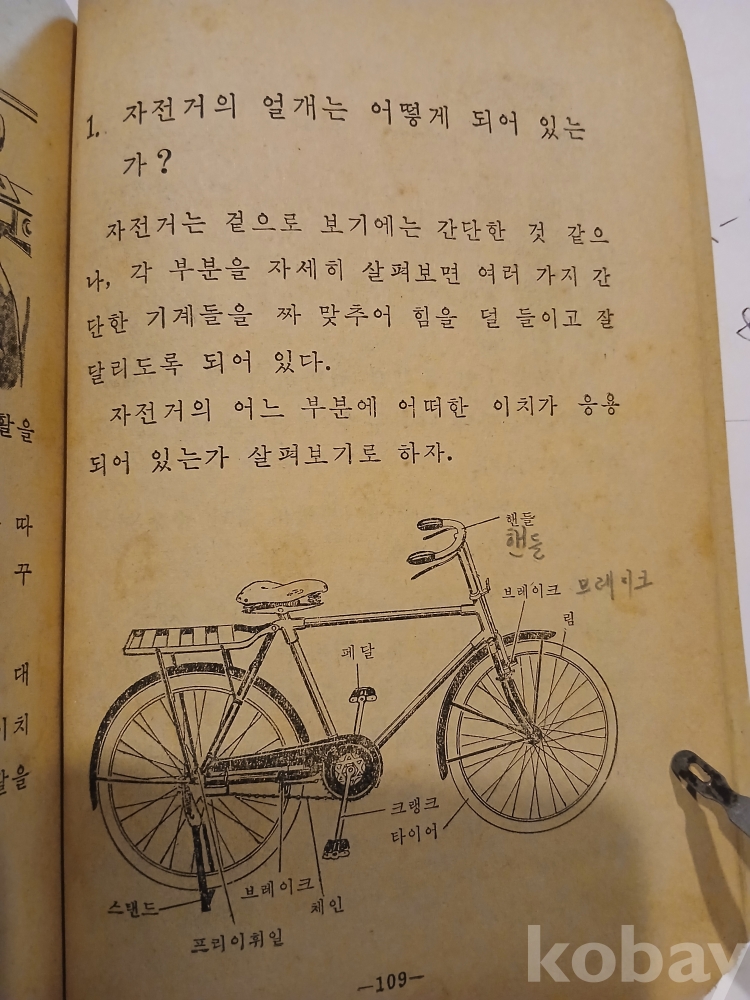 1. 자전거의 얼개는 어떻게 되어 있는
가?
자전거는 겉으로 보기에는 간단한 것 같으
나, 각 부분을 자세히 살펴보면 여러 가지 간
단한 기계들을 짜 맞추어 힘을 덜 들이고 잘
달리도록 되어 있다.
자전거의 어느 부분에 어떠한 이치가 응용
되어 있는가 살펴보기로 하자.
핸들
핸들
브레이크 브레이크
림
페달
크랭크
타이어
브레이크
체인
스탠드
프리이휘일
—109—
활을
따
꾸
대
이치
kobay